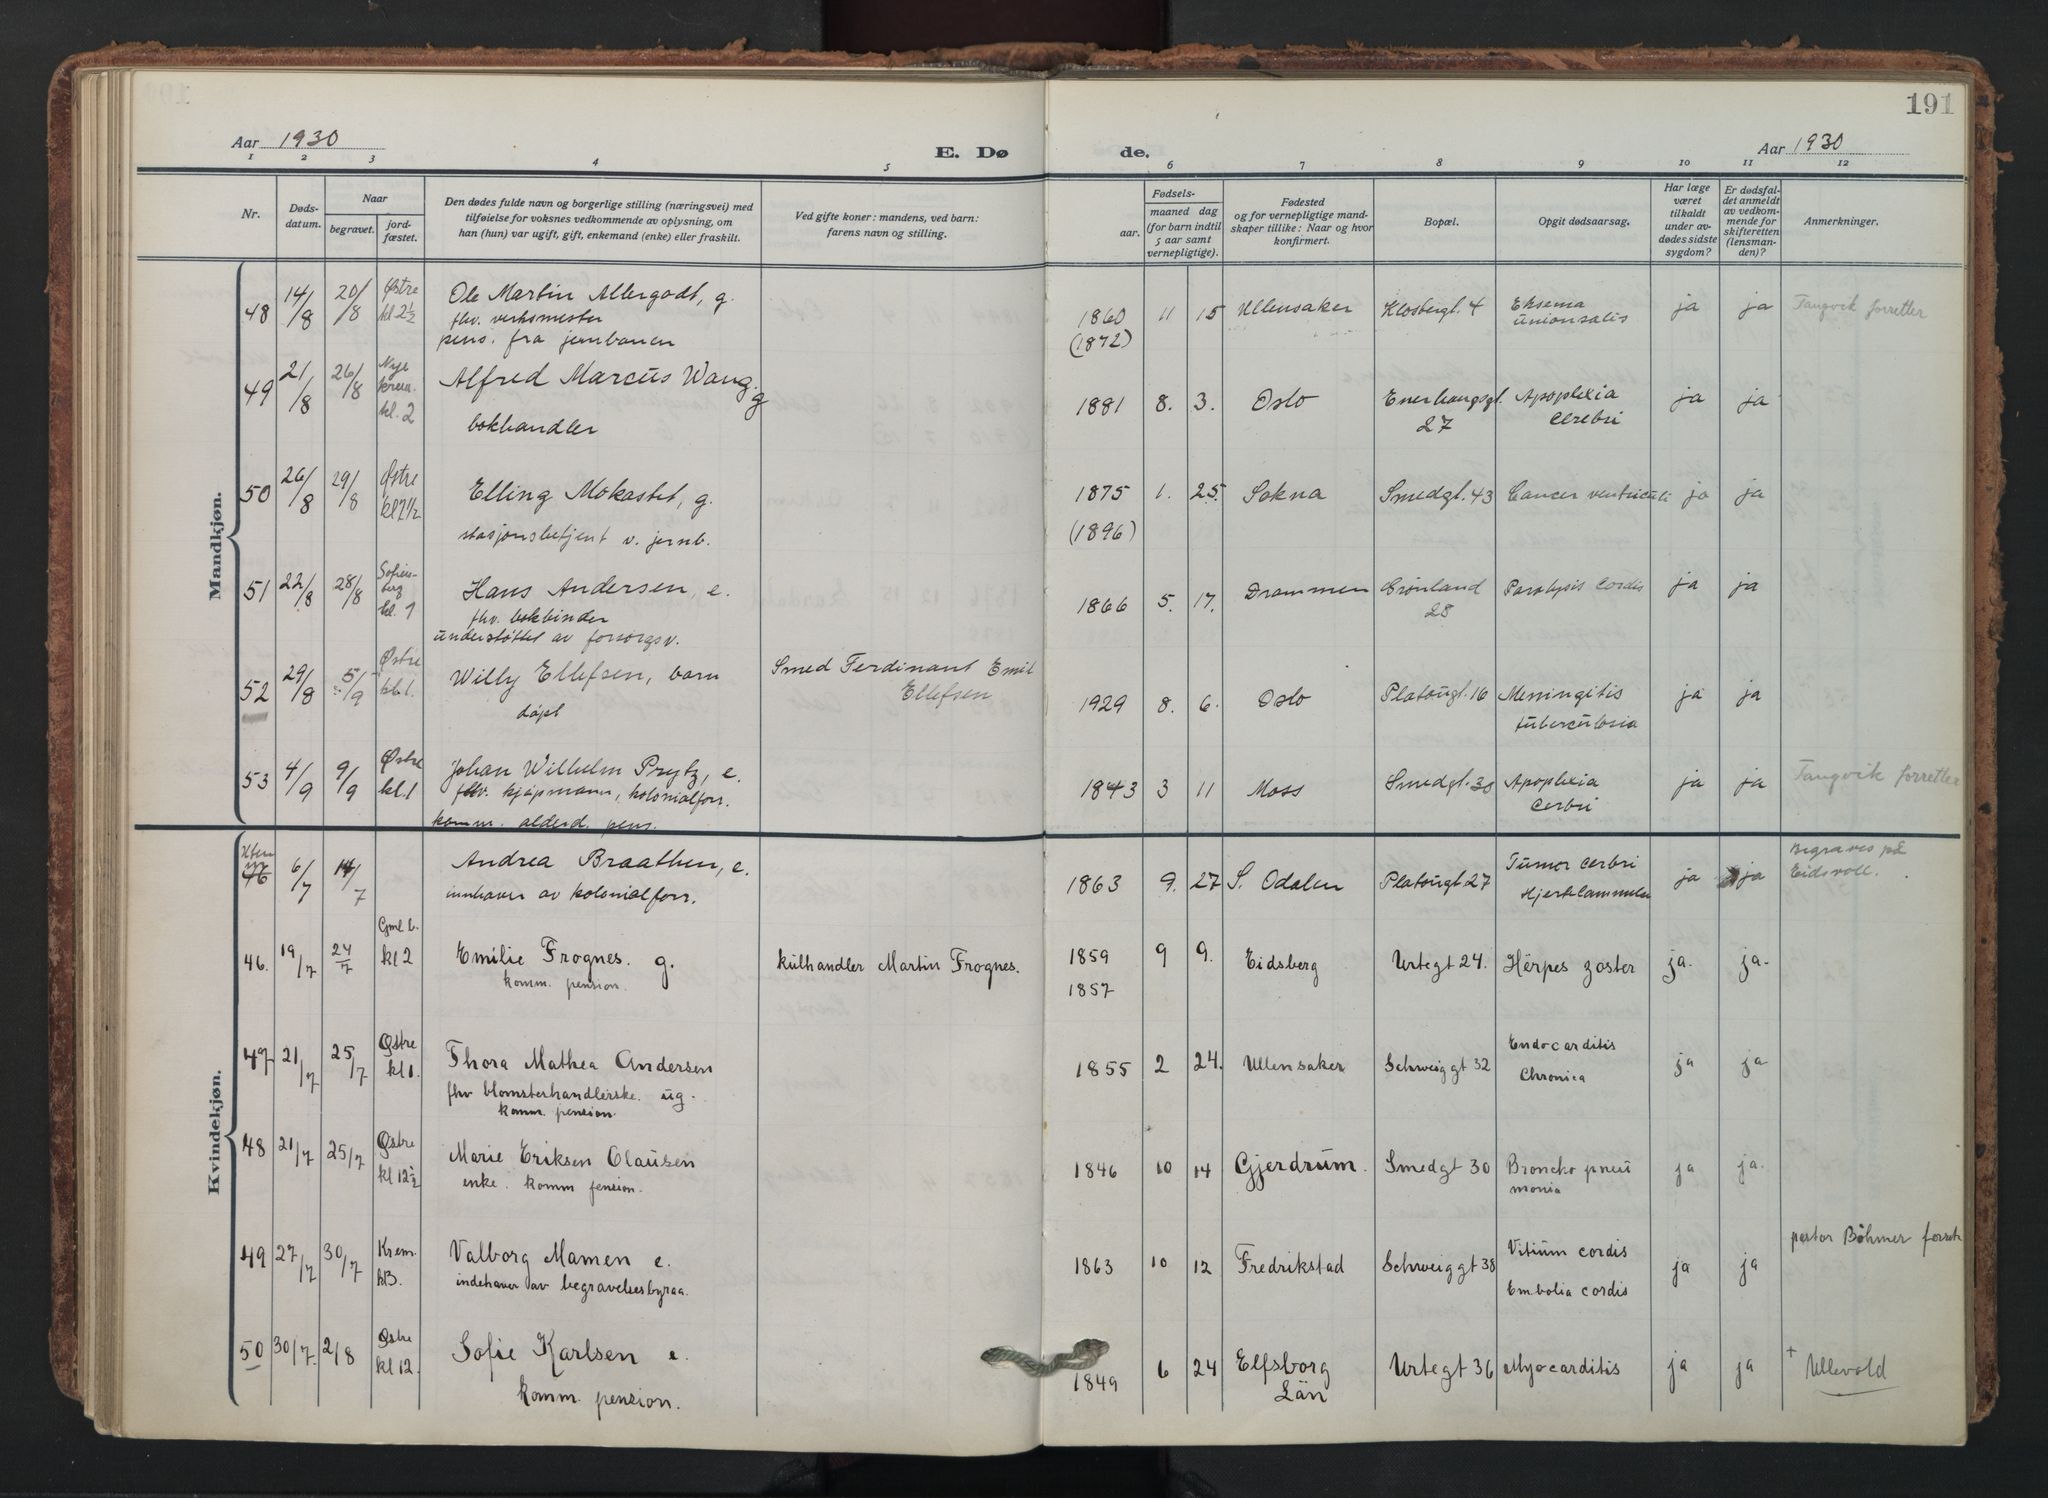 191
Aar 1930
E. Dø
de.
Aar 1930
1 2 3 4 5 6 7 8 9 10 11 12
Nr.
Døds-
datum.
Naar
begravet.
jord-
fæstet.
Den dødes fulde navn og borgerlige stilling (næringsvei) med
tilføielse for voksnes vedkommende av oplysning, om
han (hun) var ugift, gift, enkemand (enke) eller fraskilt.
Ved gifte koner: mandens, ved barn:
farens navn og stilling.
Fødsels-
aar.
maaned dag
(for barn indtil
5 aar samt
vernepligtige).
Fødested
og for vernepligtige mand-
skaper tillike: Naar og hvor
konfirmert.
Bopæl.
Opgit dødsaarsag.
Har læge
været
tilkaldt
under av-
dødes sidste
sygdom?
Er dødsfal-
det anmeldt
av vedkom-
mende for
skifteretten
(lensman-
den)?
Anmerkninger.
Mandkjøn.
48 14/8 20/8 Østre kl 2½ Ole Martin Allergodt, g. 1860 11 15 Ullensaker Klosbergt. 4 Eksema ja ja Tangvik forretter
fhv. verksmester (1872)
pens. fra jernbanen
49 21/8 26/8 Nye krem. kl. 2 Alfred Marcus Wang. g 1881 8. 3. Oslo Enerhaugsgt. 27 Apoplexia cerebri ja ja
bokhandler
50 26/8 29/8 Østre Elling Mokastet, g. 1875 1. 25. Sokna Smedgt. 43 Cancer ventriculi ja ja
stasjonsbetjent v. jernb. (1896)
51 22/8 28/8 Sofienberg kl. 1 Hans Andersen, e. 1866 5. 17. Drammen Grønland 28 Paralysis cordis ja ja
fhv. bokbinder
understøttet av forsorgsv.
52 29/8 5/9 Østre kl. 1. Willy Ellefsen, barn Smed Ferdinant Emil Ellefsen 1929 8. 6. Oslo Platougt. 16 Meningitis tuberculosia ja ja
døpt
53 4/9 9/9 Østre kl. 1 Johan Wilhelm Prytz, e. 1843 3 11 Moss Smedgt. 30 Apoplexia cerbri ja ja Tangvik forretter
fhv. kjøpmann, kolonialforr.
komm. alderd. pens.
Kvindekjøn.
Uten nr 6/7 14/7 Andrea Braathen, e. 1863 9. 27 S. Odalen Platougt 27 Tumor cerbri Hjertelammelse ja ja Begraves på Eidsvoll.
innhaver av kolonialforr.
46. 19/7 24/7 Gml b. kl 2 Emilie Frognes. g. kulhandler Martin Frognes. 1859 9 9. Eidsberg Urtegt 24. Herpes zoster ja. ja.
komm. pension. 1857
47 21/7 25/7 Østre kl 1. Thora Mathea Andersen 1855 2 24. Ullensaker Schweiggt 32 Endocarditis Chronica ja ja
fhv blomsterhandlerske. ug.
komm. pension.
48 21/7 25/7 Østre kl 12½ Marie Eriksen Clausen 1846 10 14 Gjerdrum. Smedgt 30 Broncho pneumonia ja ja.
enke. komm pension.
49 27/7 30/7 Krem. kl 3. Valborg Mamen e. 1863 10 12 Fredrikstad Schweiggt 38 Vitium cordis Embolia cordis ja ja pastor Böhmer forret
indehaver av begravelsesbyraa.
50 30/7. 2/8 Østre kl 12. Sofie Karlsen e. 1849 6 24 Elfsborg Län Urtegt 36 Myocarditis ja ja + Ullevold
komm. pension.